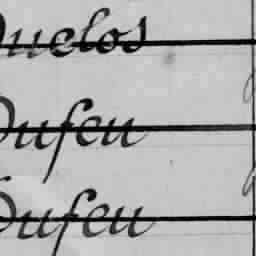 Duclos
Dufeu
Dufeu